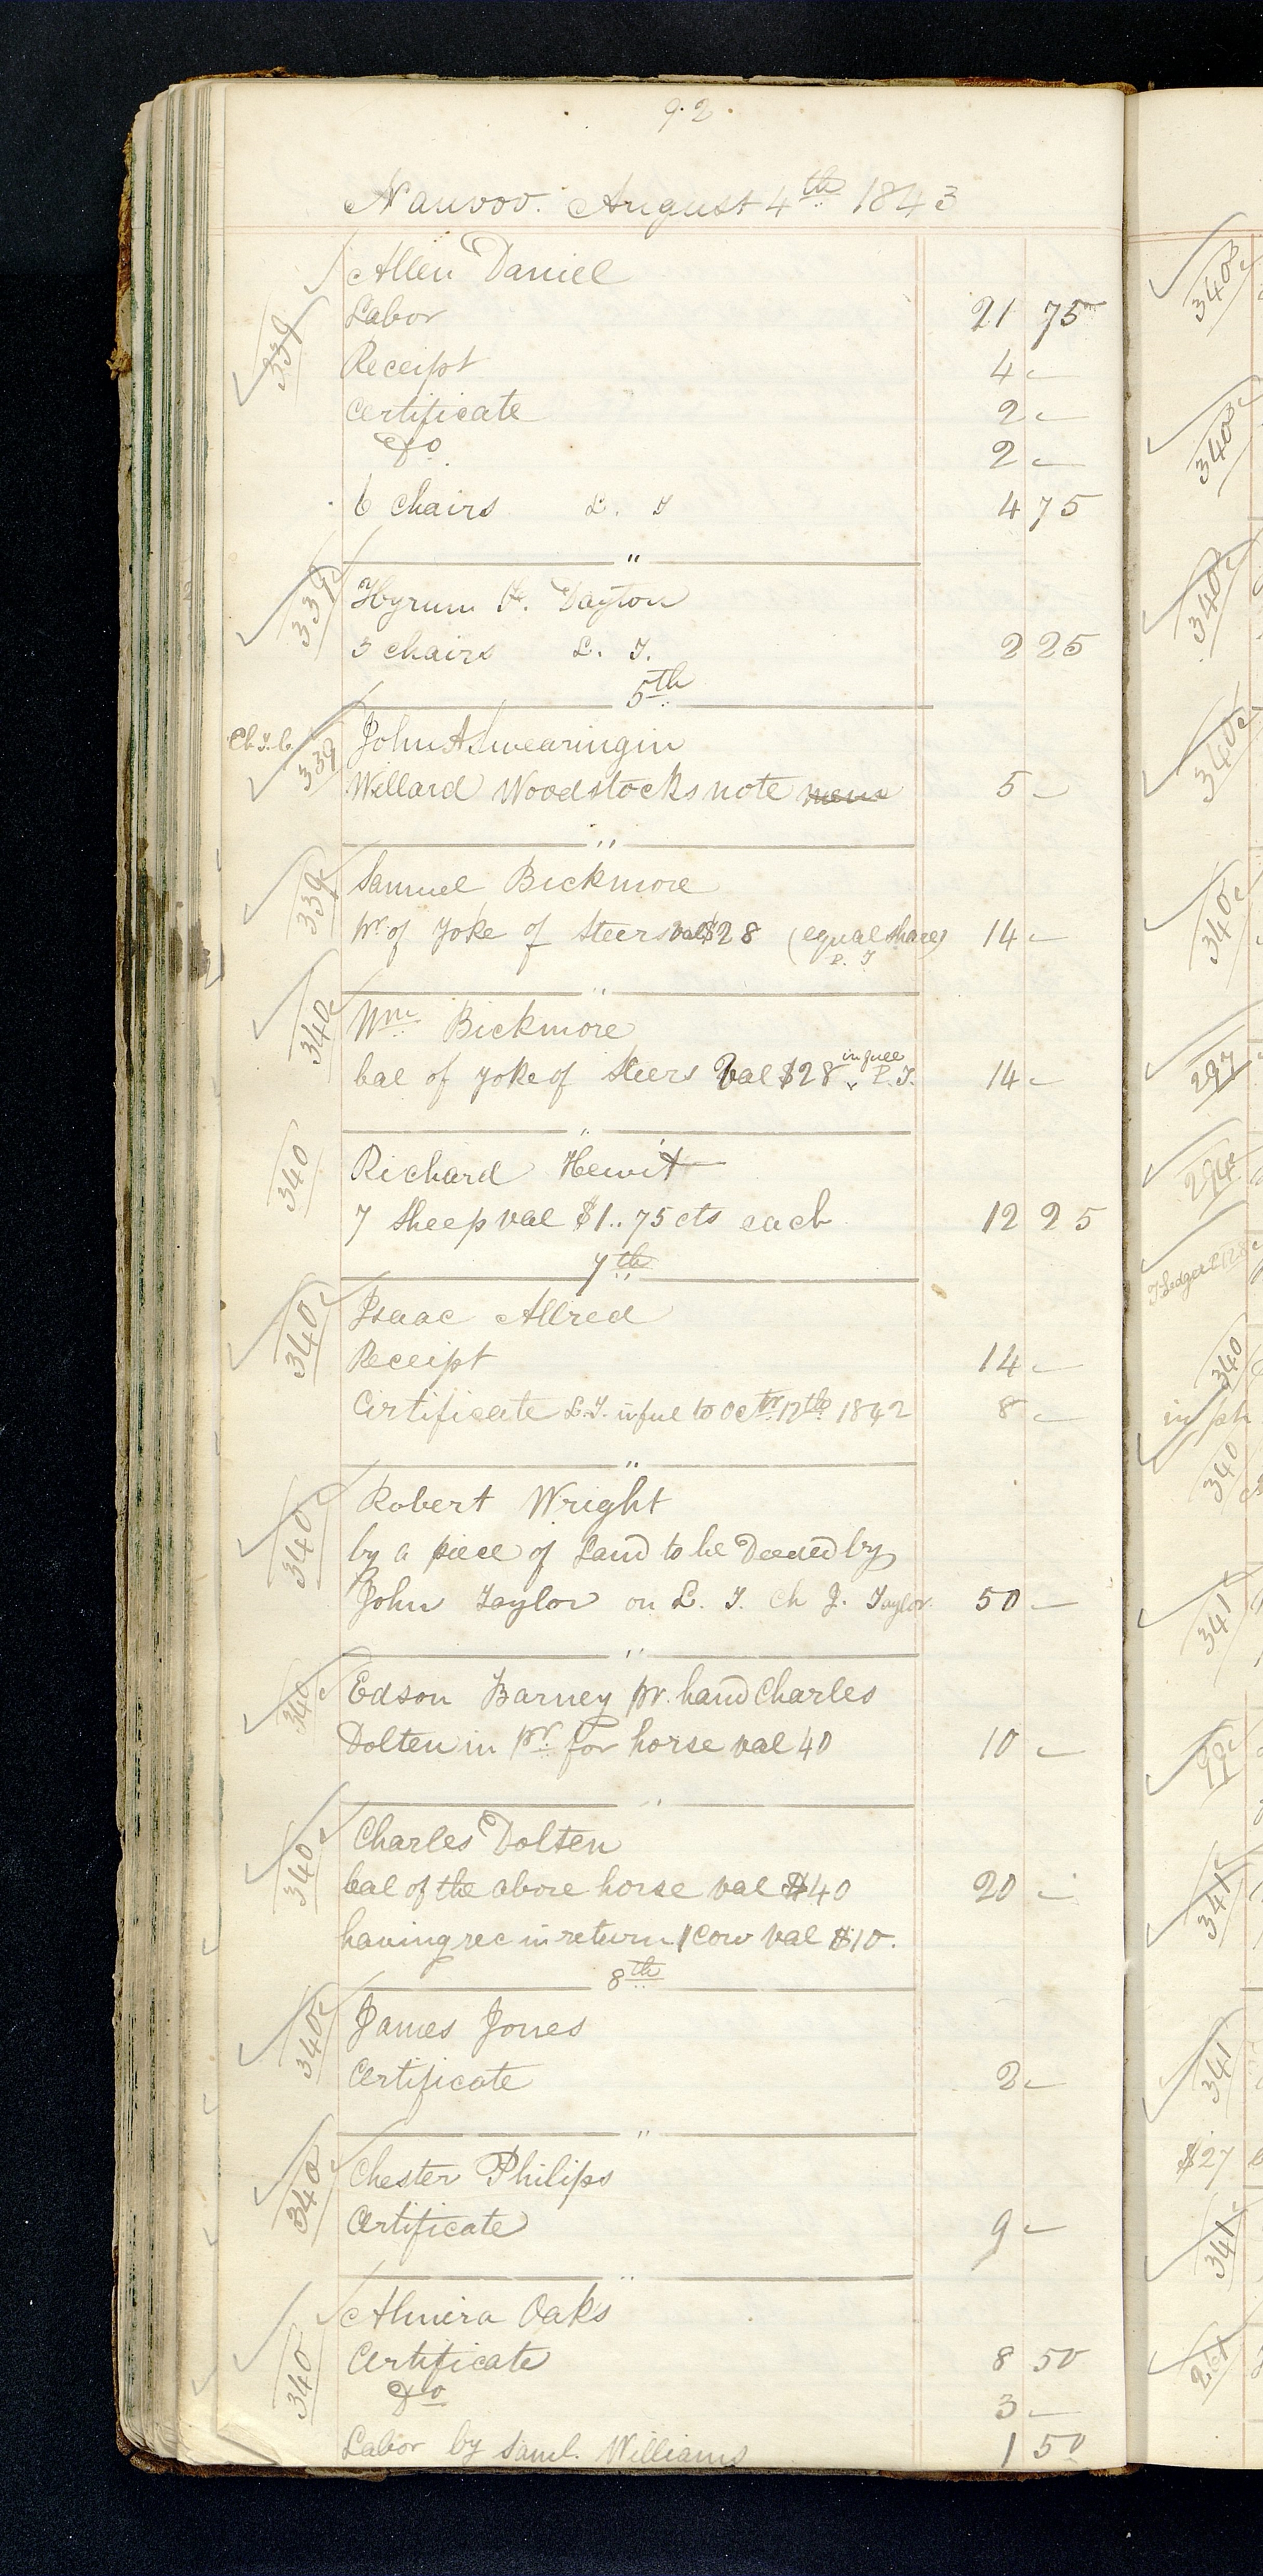 92
Nauvoo. August 4th 1843
339 Allen Daniel
Labor 21 75
Receipt 4 -
Certificate 2 -
Do 2 -
6 Chairs L. T 4 75
"
339 Hyrum H. Dayton
3 chairs L. T. 2 25
5th
Ch T. C. 339 John A Swearingin
Willard Woodstocks note 5 -
"
339 Samuel Bickmore
pr. of Yoke of Steers val $28 (equal share) 14 -
P. T
"
340 Wm Bickmore
bal of yoke of Steers Val $28 in full P. T. 14 -
"
340 Richard Hewit
7 Sheep val $1..75 cts each 12 25
7th
340 Isaac Allred
Receipt 14 -
Certificate L.T. in ful to Octr 12th 1842 8 -
"
340 Robert Wright
by a piece of Land to be Deeded by
John Taylor on L. T. Ch J. Taylor 50 -
"
340 Edson Barney pr. hand Charles
Dolten in pr. for horse val 40 10 -
"
340 Charles Dolten
bal of the above horse val $40 20 -
having rec in return 1 Cow val $10.
8th
340 James Jones
Certificate 2 -
"
340 Chester Philips
Certificate 9 -
"
340 Almira Oaks
Certificate 8 50
Do 3 -
Labor by Saml. Williams 1 50
340
340
340
340
340
297
294
T. Ledger
340
in ph
340
341
99
341
341
$27
341
261